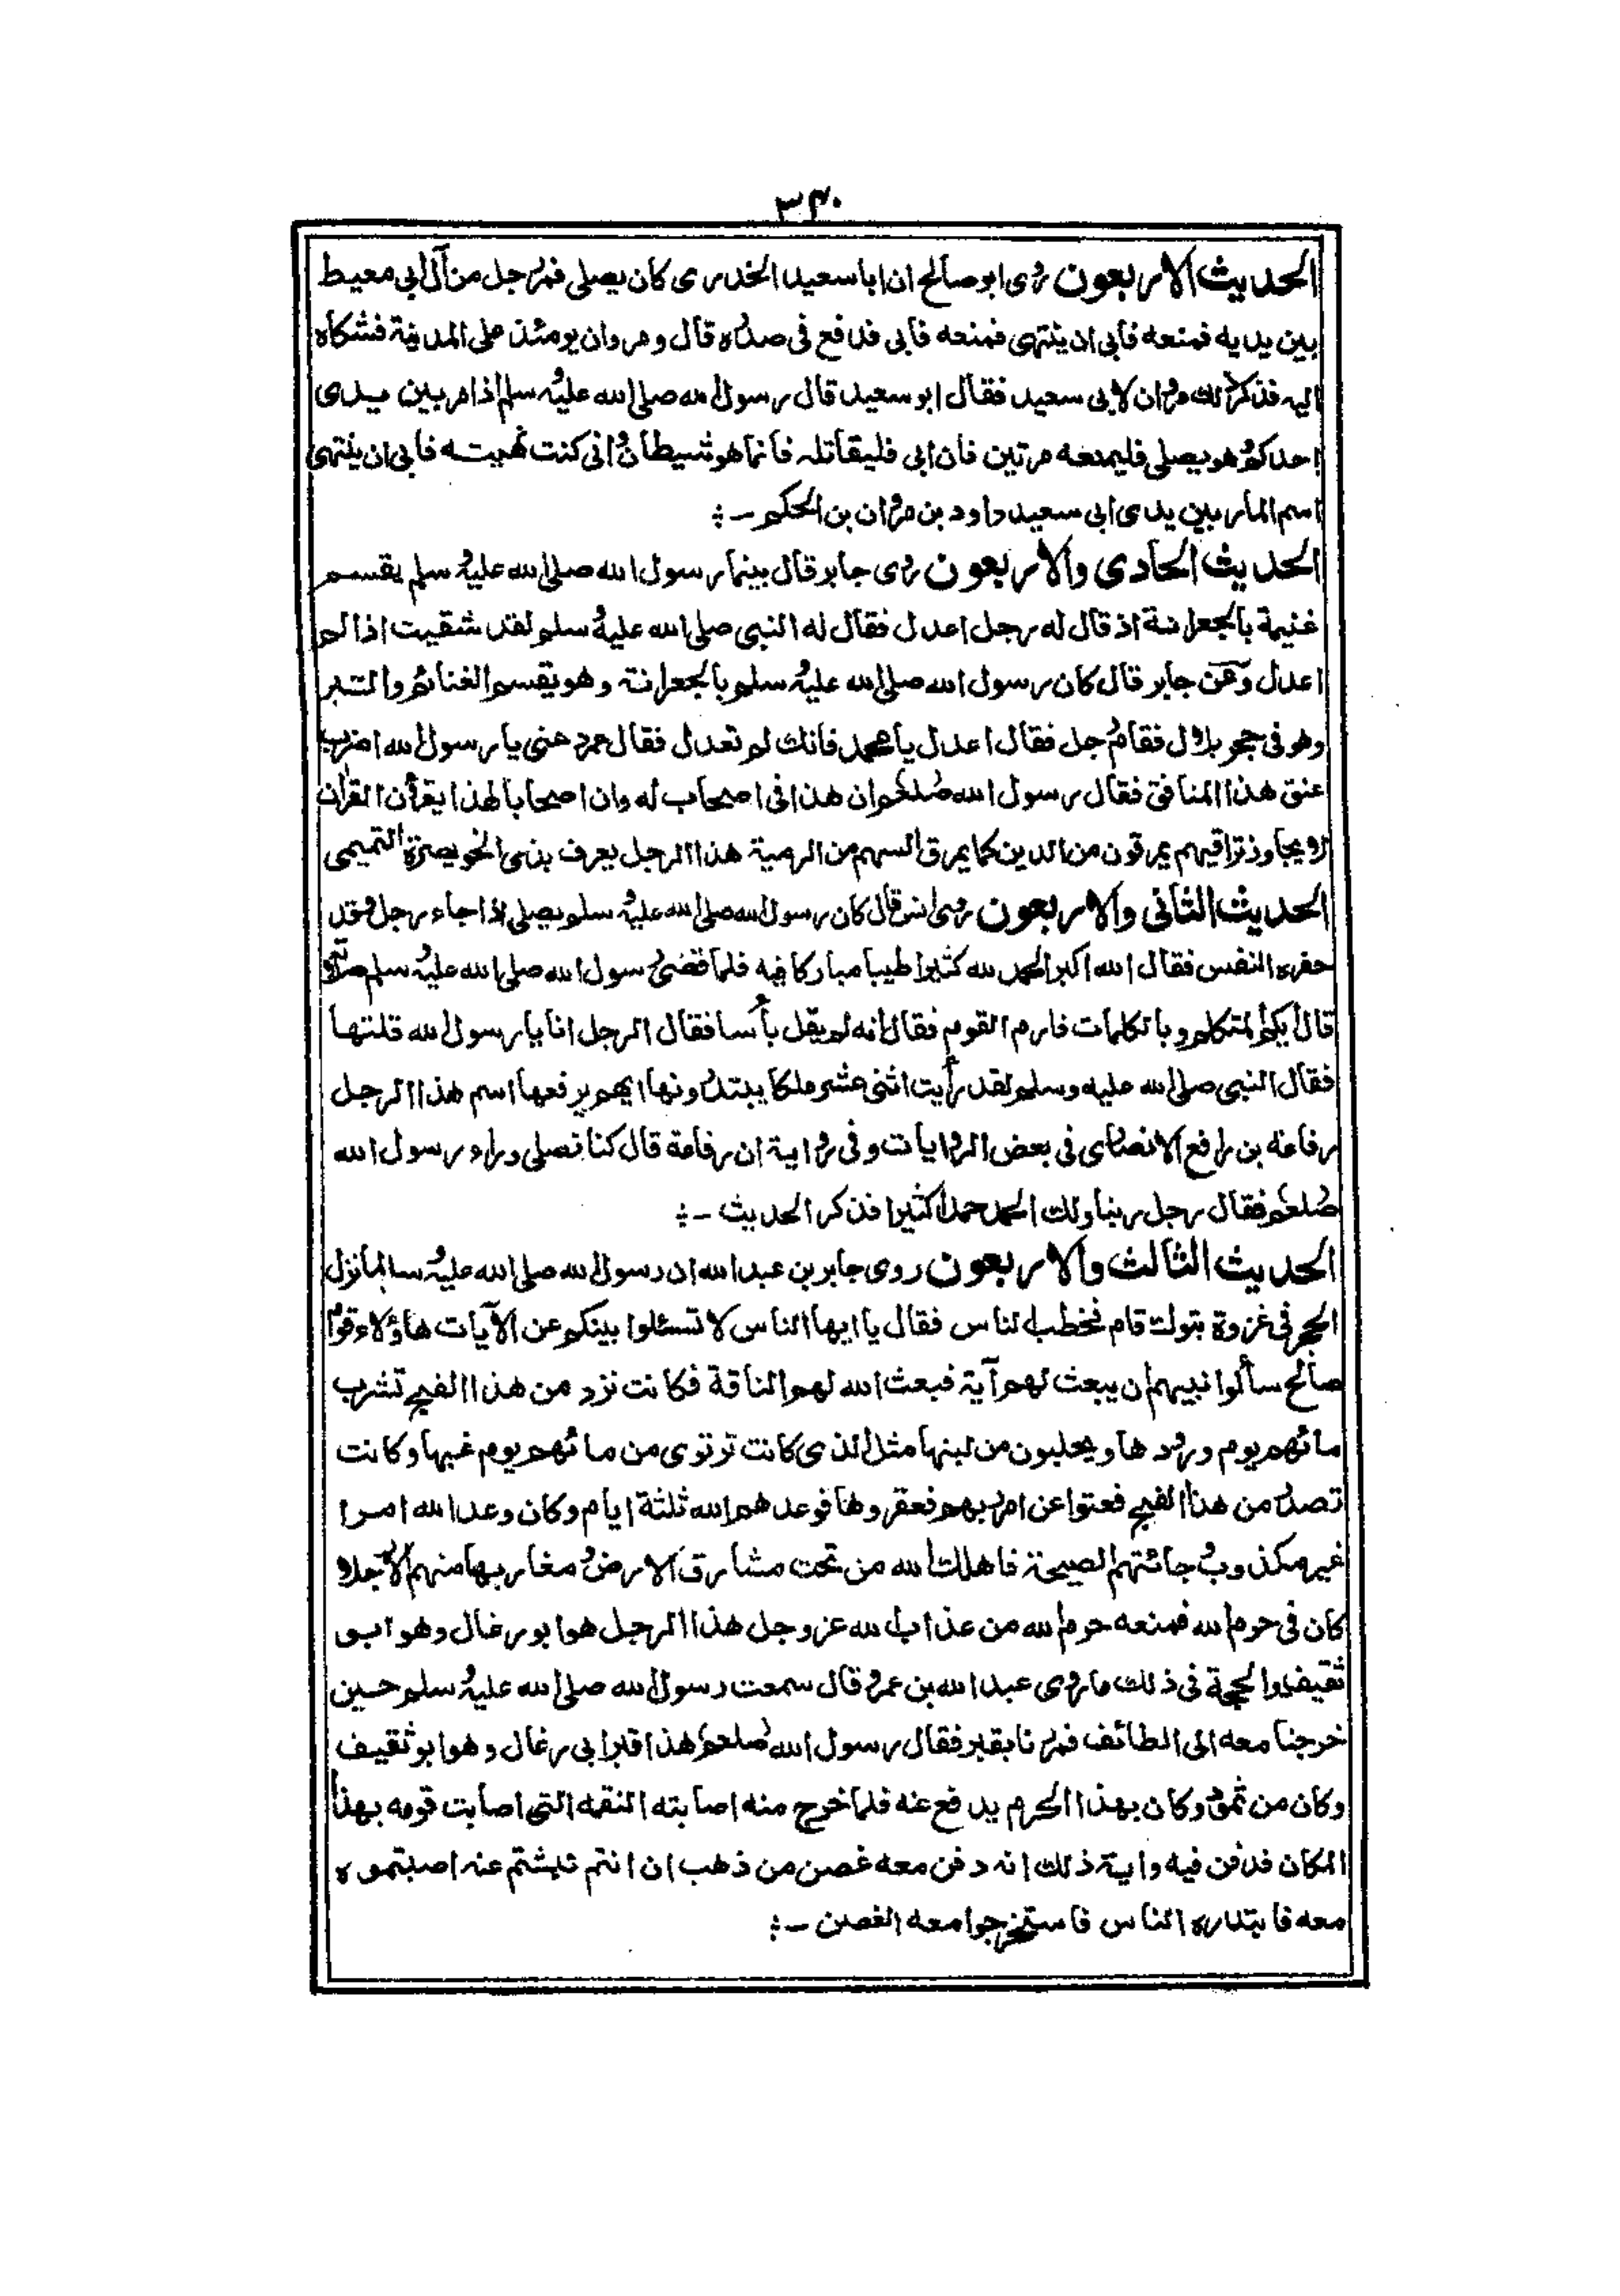 ٣٤٠
الحديث الاربعون روى ابو صالح ان ابا سعيد الخدرى كان يصلى فمر رجل من آل ابي معيط
بين يديه فمنعه فابى ان ينتهى فمنعه فابى فدافع فى صدره قال ومروان يومئذ على المدينة فشكاه
اليه فذكر ذلك مروان لابى سعيد فقال ابو سعيد قال رسول الله صلى الله عليه وسلم اذا مر بين يدى
احدكم وهو يصلى فليمنعه مرتين فان ابى فليقاتله فانما هو شيطان وانى كنت نهيته فابى ان ينتهى
اسم المار بين يدى ابى سعيد داود بن مروان بن الحكم ــ :
الحديث الحادى والاربعون روى جابر قال بينما رسول الله صلى الله عليه وسلم يقسم
غنيمة بالجعرانة اذ قال له رجل اعدل فقال له النبى صلى الله عليه وسلم لقد شقيت اذا لم
اعدل وعن جابر قال كان رسول الله صلى الله عليه وسلم بالجعرانة وهو يقسم الغنائم والتبر
وهو فى حجر بلال فقام رجل فقال اعدل يا محمد فانك لم تعدل فقال عمر دعنى يا رسول الله اضرب
عنق هذا المنافق فقال رسول الله صلعم ان هذا فى اصحاب له وان اصحابا لهذا يقرأن القرأن
لا يجاوز تراقيهم يمرقون من الدين كما يمرق السهم من الرمية هذا الرجل يعرف بذى الخويصرة التميمى
الحديث الثانى والاربعون روى انس قال كان رسول الله صلى الله عليه وسلم يصلى اذا جاء رجل وقد
حفزه النفس فقال الله اكبر الحمد لله كثيرا طيبا مباركا فيه فلما قضى رسول الله صلى الله عليه وسلم صلاته
قال ايكم المتكلم بالكلمات فارم القوم فقال انه لم يقل بأسا فقال الرجل انا يا رسول الله قلتها
فقال النبى صلى الله عليه وسلم لقد رأيت اثنى عشر ملكا يبتدرونها ايهم يرفعها اسم هذا الرجل
رفاعة بن رافع الانصارى فى بعض الروايات وفى رواية ان رفاعة قال كنا نصلى وراء رسول الله
صلعم فقال رجل ربنا ولك الحمد حمدا كثيرا فذكر الحديث ــ :
الحديث الثالث والاربعون روى جابر بن عبد الله ان رسول الله صلى الله عليه وسلم لما نزل
الحجر فى غزوة تبوك قام فخطب الناس فقال يا ايها الناس لا تسئلوا بينكم عن الآيات هاؤلاء قوم
صالح سألوا نبيهم ان يبعث لهم آية فبعث الله لهم الناقة فكانت ترد من هذا الفج تشرب
مائهم يوم ورودها ويحلبون من لبنها مثل الذى كانت ترتوى من مائهم يوم غبها وكانت
تصدر من هذا الفج فعتوا عن امر ربهم فعقروها فوعدهم الله ثلثة ايام وكان وعد الله امرا
غير مكذوب وجائتهم الصيحة فاهلك الله من تحت مشارق الارض ومغاربها منهم الا رجلا
كان فى حرم الله فمنعه حرم الله من عذاب الله عز وجل هذا الرجل هو ابو رغال وهو ابو
ثقيف والحجة فى ذلك ما روى عبد الله بن عمرو قال سمعت رسول الله صلى الله عليه وسلم حين
خرجنا معه الى الطائف فمررنا بقبر فقال رسول الله صلعم هذا قبر ابى رغال وهو ابو ثقيف
وكان من ثمود وكان بهذا الحرم يدفع عنه فلما خرج منه اصابته النقمه التى اصابت قومه بهذا
المكان فدفن فيه واية ذلك انه دفن معه غصن من ذهب ان انتم نبشتم عنه اصبتموه
معه فابتدره الناس فاستخرجوا معه الغصن ــ :